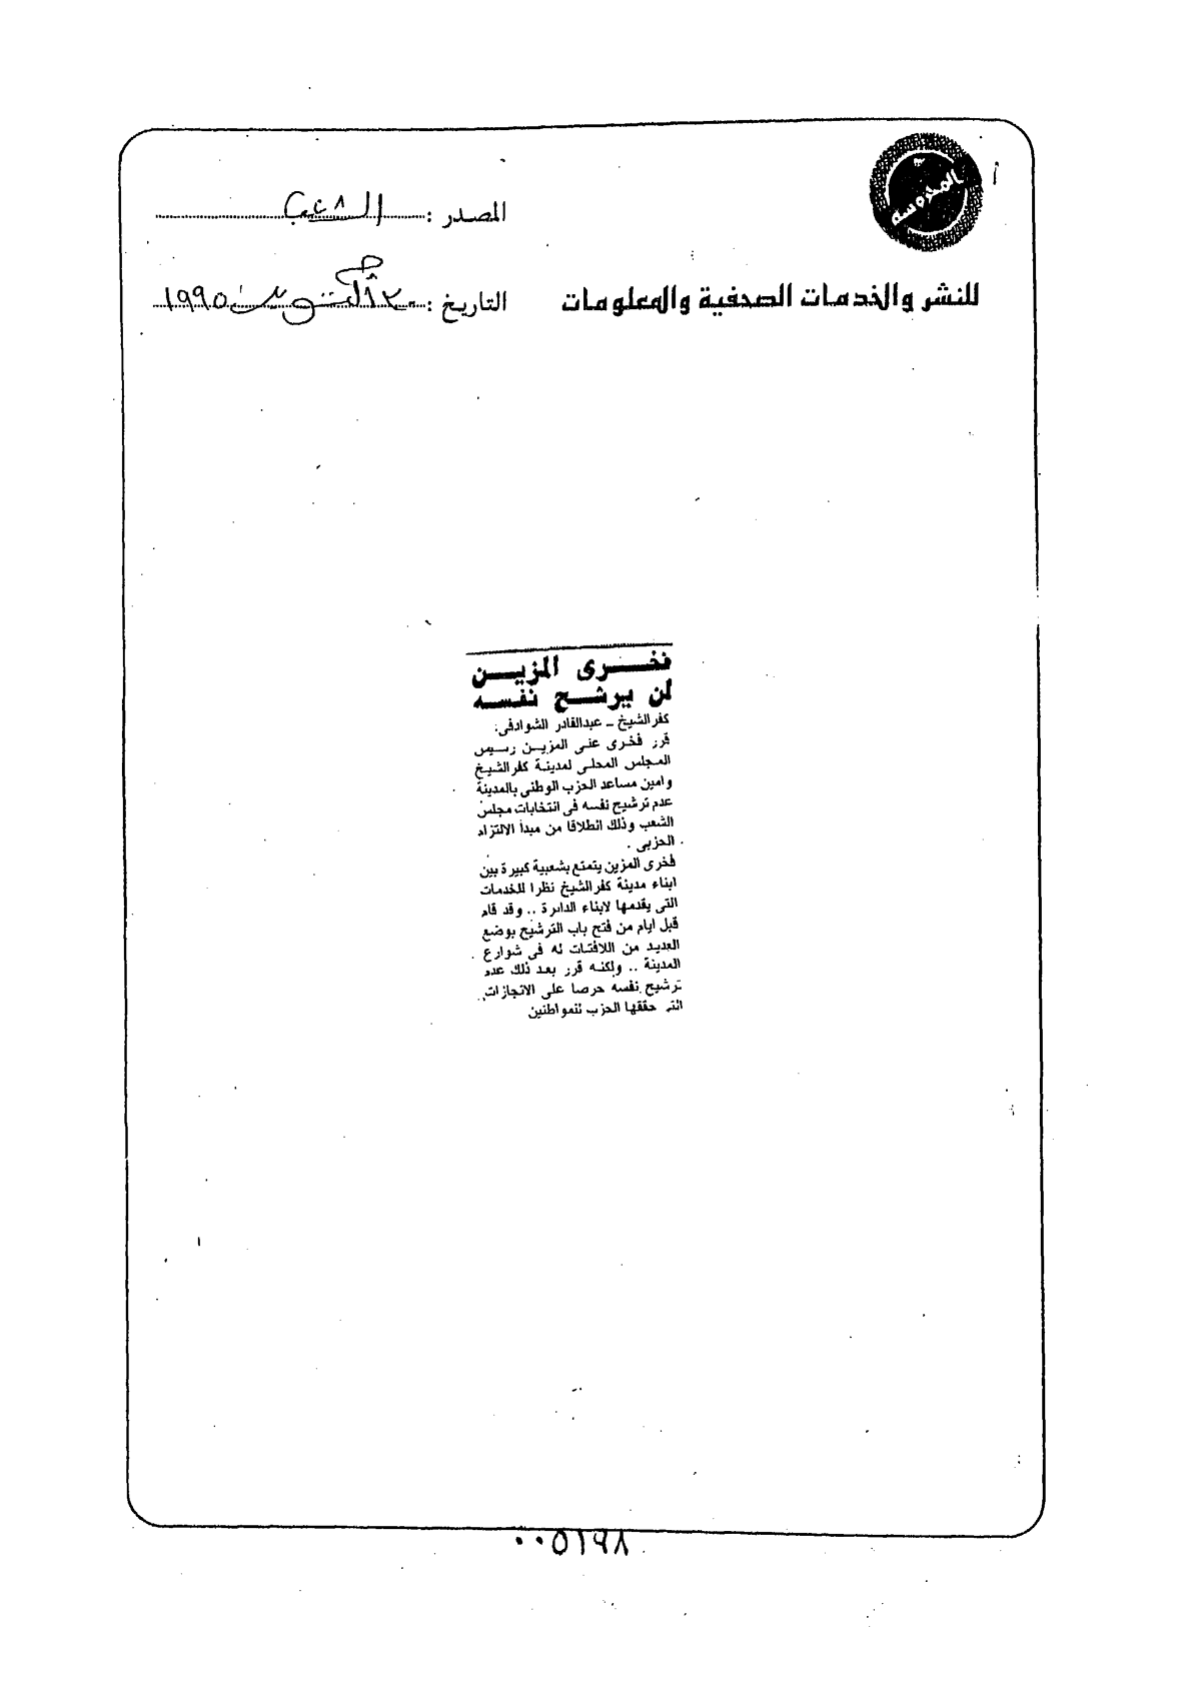 المحروسه
المصدر : الشعب
للنشر والخدمات الصحفية والمعلومات
التاريخ : أكتوبر ١٩٩٥
فخرى المزين
لن يرشح نفسه
كفر الشيخ ـ عبدالقادر الشوادفى:
قرر فخرى على المزين رئيس
المجلس المحلى لمدينة كفر الشيخ
وامين مساعد الحزب الوطنى بالمدينة
عدم ترشيح نفسه فى انتخابات مجلس
الشعب وذلك انطلاقا من مبدأ الالتزام
الحزبى .
فخرى المزين يتمتع بشعبية كبيرة بين
ابناء مدينة كفر الشيخ نظرا للخدمات
التى يقدمها لابناء الدائرة .. وقد قام
قبل ايام من فتح باب الترشيح بوضع
العديد من اللافتات له فى شوارع
المدينة .. ولكنه قرر بعد ذلك عدم
ترشيح نفسه حرصا على الانجازات
التى حققها الحزب للمواطنين
٠٠٥١٩٨